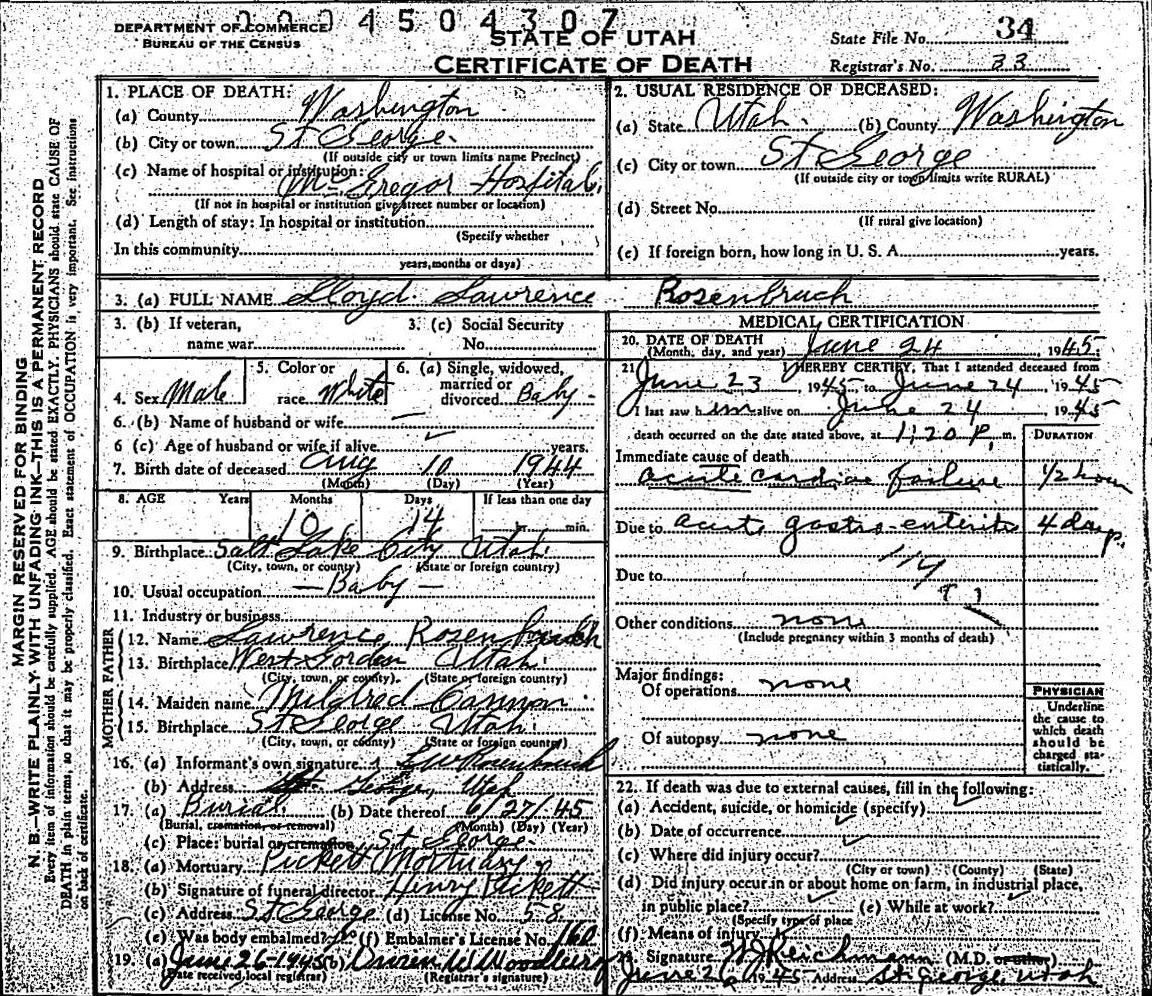 0004504307
DEPARTMENT OF COMMERCE
BUREAU OF THE CENSUS
STATE OF UTAH
CERTIFICATE OF DEATH
State File No. 34
Registrar's No. 33
MARGIN RESERVED FOR BINDING
N. B.—WRITE PLAINLY WITH UNFADING INK—THIS IS A PERMANENT RECORD
Every item of information should be carefully supplied. AGE should be stated EXACTLY. PHYSICIANS should state CAUSE OF
DEATH in plain terms, so that it may be properly classified. Exact statement of OCCUPATION is very important. See instructions
on back of certificate.
1. PLACE OF DEATH:
(a) County Washington
(b) City or town St George
(If outside city or town limits name Precinct)
(c) Name of hospital or institution:
McGregor Hospital
(If not in hospital or institution give street number or location)
(d) Length of stay: In hospital or institution
(Specify whether
In this community
years, months or days)
2. USUAL RESIDENCE OF DECEASED:
(a) State Utah (b) County Washington
(c) City or town St George
(If outside city or town limits write RURAL)
(d) Street No.
(If rural give location)
(e) If foreign born, how long in U. S. A. years.
3. (a) FULL NAME Lloyd Lawrence Rosenbruch
3. (b) If veteran,
name war
3. (c) Social Security
No.
4. Sex Male
5. Color or
race White
6. (a) Single, widowed,
married or
divorced Baby -
6. (b) Name of husband or wife —
6 (c) Age of husband or wife if alive years.
7. Birth date of deceased Aug 10 1944
(Month) (Day) (Year)
8. AGE Years Months Days If less than one day
10 14 hr. min.
9. Birthplace Salt Lake City Utah
(City, town, or county) (State or foreign country)
10. Usual occupation — Baby —
11. Industry or business
FATHER
12. Name Lawrence Rosenbruch
13. Birthplace West Jordan Utah
(City, town, or county) (State or foreign country)
MOTHER
14. Maiden name Mildred Cannon
15. Birthplace St George Utah
(City, town, or county) (State or foreign country)
16. (a) Informant's own signature
(b) Address St. George, Utah
17. (a) Burial (b) Date thereof 6/27/45
(Burial, cremation, or removal) (Month) (Day) (Year)
(c) Place: burial or cremation St George
18. (a) Mortuary Pickett Mortuary
(b) Signature of funeral director Henry Pickett
(c) Address St George (d) License No. 58
(e) Was body embalmed? (f) Embalmer's License No. 160
19. (a) June 26-1945 (b) Woodbury
(Date received local registrar) (Registrar's signature)
MEDICAL CERTIFICATION
20. DATE OF DEATH
(Month, day, and year) June 24 1945
21. I HEREBY CERTIFY, That I attended deceased from
June 23 1945 to June 24 1945
I last saw him alive on June 24 1945
death occurred on the date stated above, at 1:20 P. m.
DURATION
Immediate cause of death
acute cardiac failure 1/2 hour
Due to acute gastro-enteritis 4 days
119
Due to
Other conditions none
(Include pregnancy within 3 months of death)
Major findings:
Of operations none
Of autopsy none
PHYSICIAN
Underline
the cause to
which death
should be
charged sta-
tistically.
22. If death was due to external causes, fill in the following:
(a) Accident, suicide, or homicide (specify)
(b) Date of occurrence
(c) Where did injury occur?
(City or town) (County) (State)
(d) Did injury occur in or about home on farm, in industrial place,
in public place? (e) While at work?
(Specify type of place
(f) Means of injury
23. Signature Reichmann (M.D. or other)
June 26 1945 Address St George, Utah